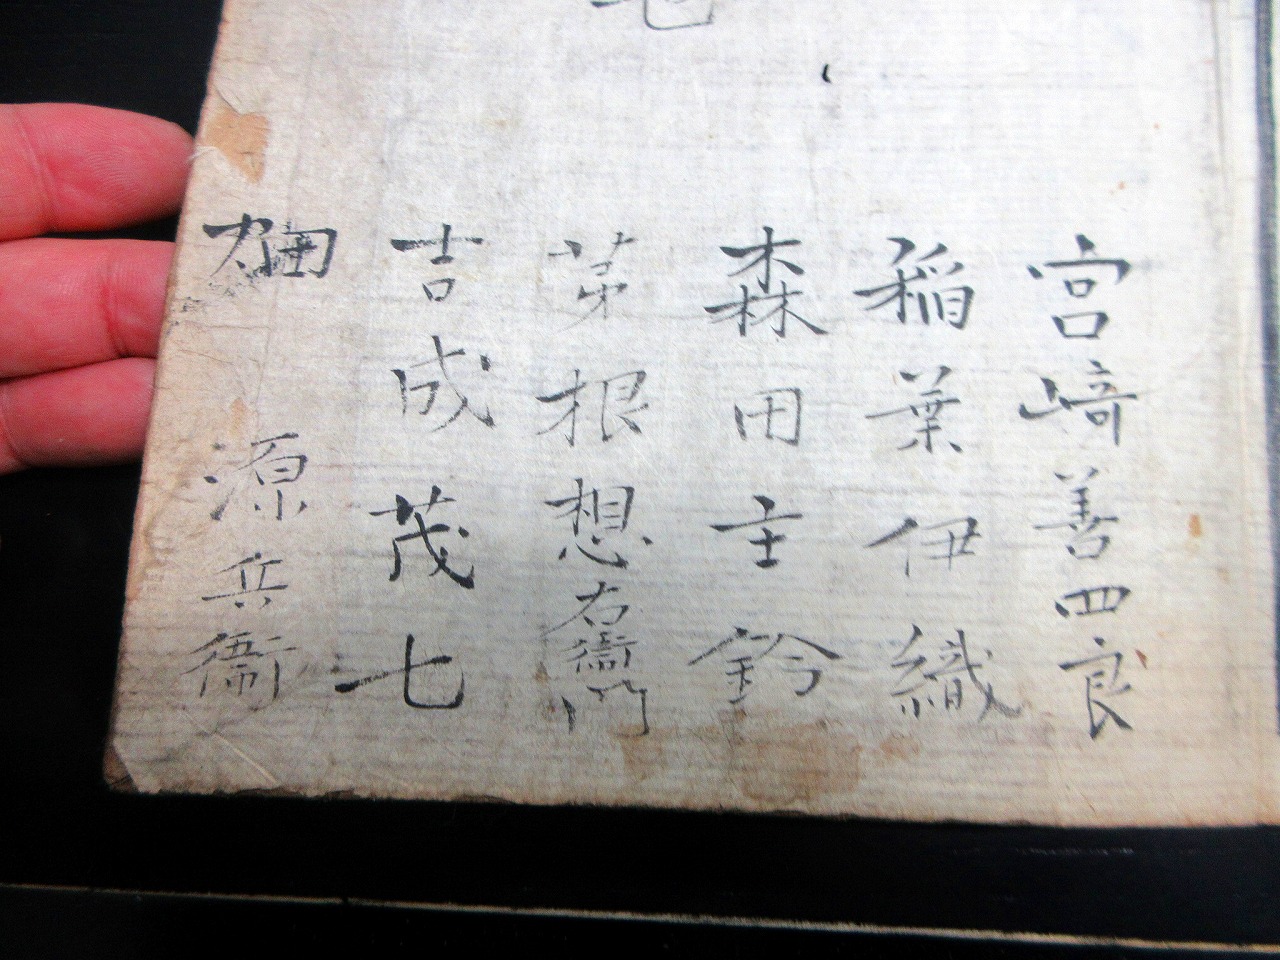 宮﨑善四良
稲葉伊織
森田主鈴
茅根想右衛門
吉成茂七
源兵衛